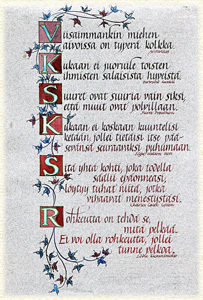 Viisaimmankin miehen
aivoissa on typerä kolkka.
Aristoteles
Kukaan ei juorule toisten
ihmisten salaisista hyveistä.
Bertrand Russell
Suuret ovat suuria vain siksi,
että muut ovat polvillaan.
Kukaan ei koskaan kuuntelisi
ketään, jollei tietäisi itse pää-
sevänsä seuraavaksi puhumaan.
Sitä yhtä kohti, joka todella
säälii epäonneasi,
löytyy tuhat niitä, jotka
vihaavat menestystäsi.
Rohkeutta on tehdä se,
mitä pelkää.
Ei voi olla rohkeutta, jollei
tunne pelkoa.